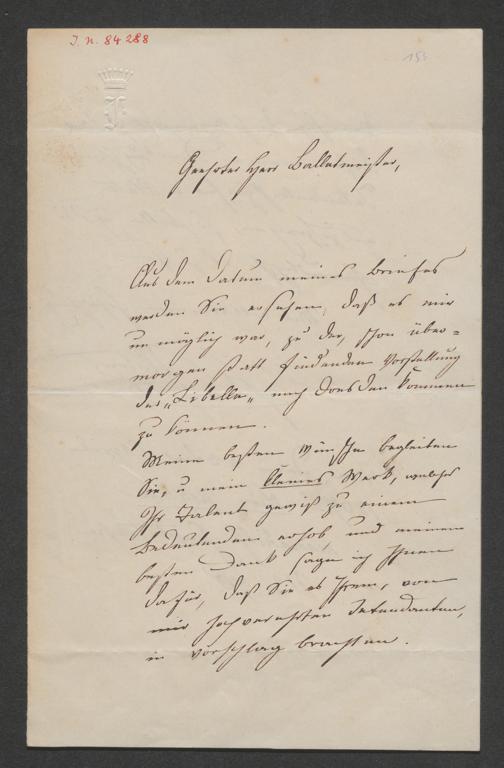 J. N. 84288
155
Geehrter Herr Balletmeister,
Aus dem Datum meines Briefes
werden Sie ersehen, daß es mir
unmöglich war, zu der, schon über=
morgen statt findenden Vorstellung
der „Libelle„ nach Dresden kommen
zu können.
Meine besten Wünsche begleiten
Sie, u mein kleines Werk, welches
Ihr Talent gewiß zu einem
bedeutenden erhob, und meinen
besten Dank sage ich Ihnen
dafür, daß Sie es Ihrem, von
mir hochverehrten Intendanten,
in Vorschlag brachten.